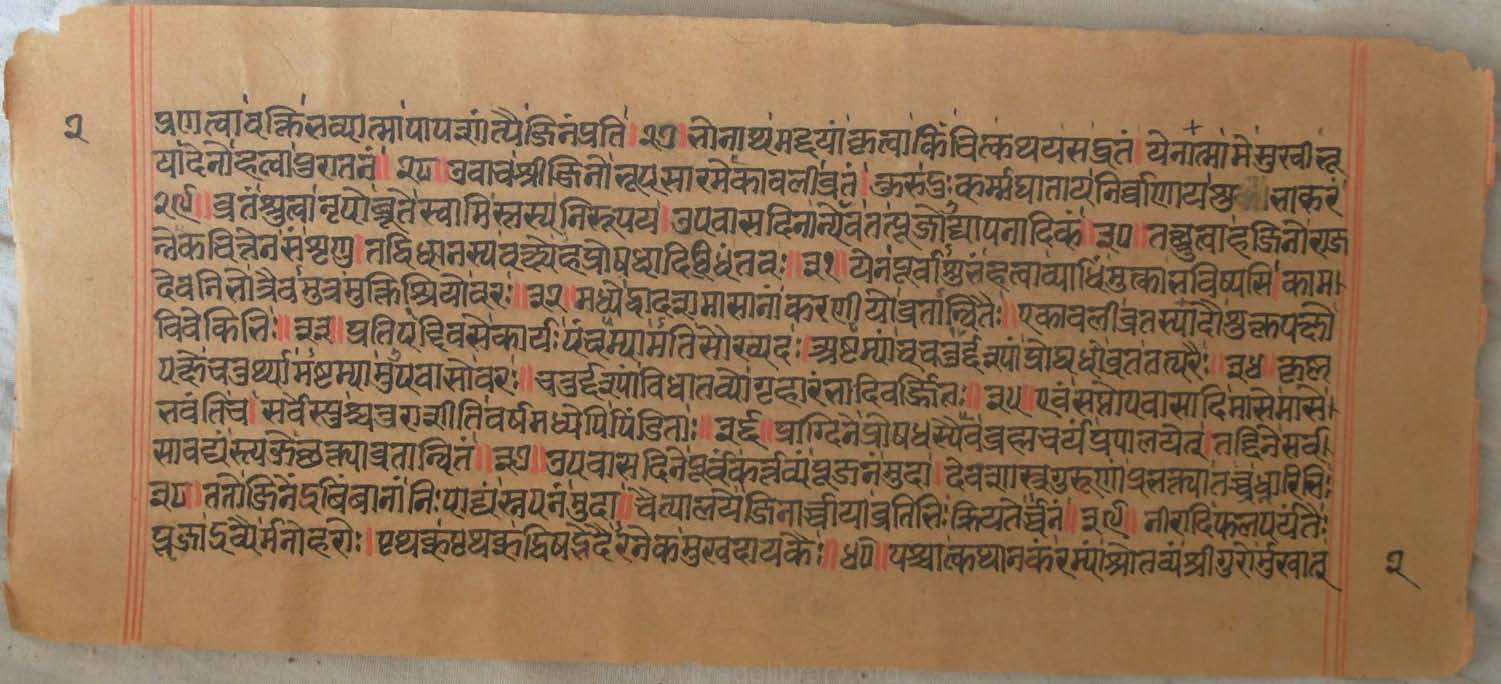 २ प्रणत्वा वक्ति भव्यात्मा पापशांत्यै जिनं प्रति ॥ २७ ॥ भो नाथ मद्दयां कृत्वा किंचित्कथय सद्व्रतं । येनात्मा मे सुखी भू
यादेनो हत्वा पुरातनं ॥ २८ ॥ उवाच श्रीजिनो भूप सारमेकावलीव्रतं । कर्म्मघाताय निर्व्वाणाय
२९ ॥ व्रतं श्रुत्वा नृपो ब्रूते स्वामिस्तस्य निरूपय । उपवासदिनान्येव तत्पूजोद्यापनादिकं ॥ ३० ॥ तच्छ्रुत्वाह जिनो राज
न्नेकचित्तेन संशृणु । तद्विधानस्य वक्ष्येह प्रोषधादि तव ॥ ३१ ॥ येन पूर्वा हत्वा व्याधिं मुक्ता भविष्यसि । काम
देवनिभो त्रैव मुत्र मुक्तिश्रियो वरः ॥ ३२ ॥ मध्ये द्वादशमासानां करणीयो व्रतान्वितैः । एकावलीव्रतस्यादौ शुक्लपक्षे
विवेकिभिः ॥ ३३ ॥ प्रतिपद्दिवसे कार्यः पंचम्यामतिसौख्यदः । अष्टम्यां च चतुर्द्दश्यां प्रोषधो व्रततत्परैः ॥ ३४ ॥ कृष्ण
पक्षे चतुर्थ्यामष्टम्यामुपवासो वरः ॥ चतुर्द्दश्यां विधातव्यो गृहारंभादिवर्जितः ॥ ३५ ॥ एवं सप्तोपवासादि मासे मासे
भवंति च । सर्वे स्युश्चतुराशीतिवर्षमध्ये पि पिंडिताः ॥ ३६ ॥ प्राग्दिने प्रोषधस्यैव ब्रह्मचर्यं प्रपालयेत् । तद्दिने सर्व
सावद्यं त्यजेद्भक्त्या व्रतान्वितं ॥ ३७ ॥ उपवासदिने पूर्वं कर्त्तव्यं पूजनं मुदा । देवशास्त्रगुरूणां
३८ ॥ ततो जिनेंद्रबिंबानां निःपाद्यं स्नपनं मुदा ॥ चैत्यालये जिनार्च्चाया व्रतिभिः क्रियतेर्च्चनं ॥ ३९ ॥ नीरादिफलपर्यंतैः
पूजाद्रव्यैर्मनोहरैः । पृथक् पृथक् द्विषड्भेदैरनेकसुखदायकैः ॥ ४० ॥ पश्चात्कथानकं रम्यं श्रोतव्यं श्रीगुरोर्मुखात् २